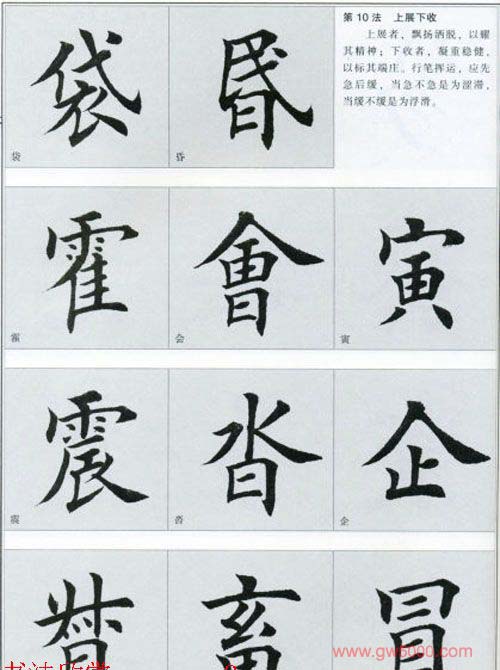 第10法 上展下收
上展者，飘扬洒脱，以耀
其精神；下收者，凝重稳健，
以标其端庄。行笔挥运，应先
急后缓，当急不急是为涩滞，
当缓不缓是为浮滑。
袋 昬
袋 昏
霍 會 寅
霍 会 寅
震 沓 企
震 沓 企
畜 冒
www.gw5000.com